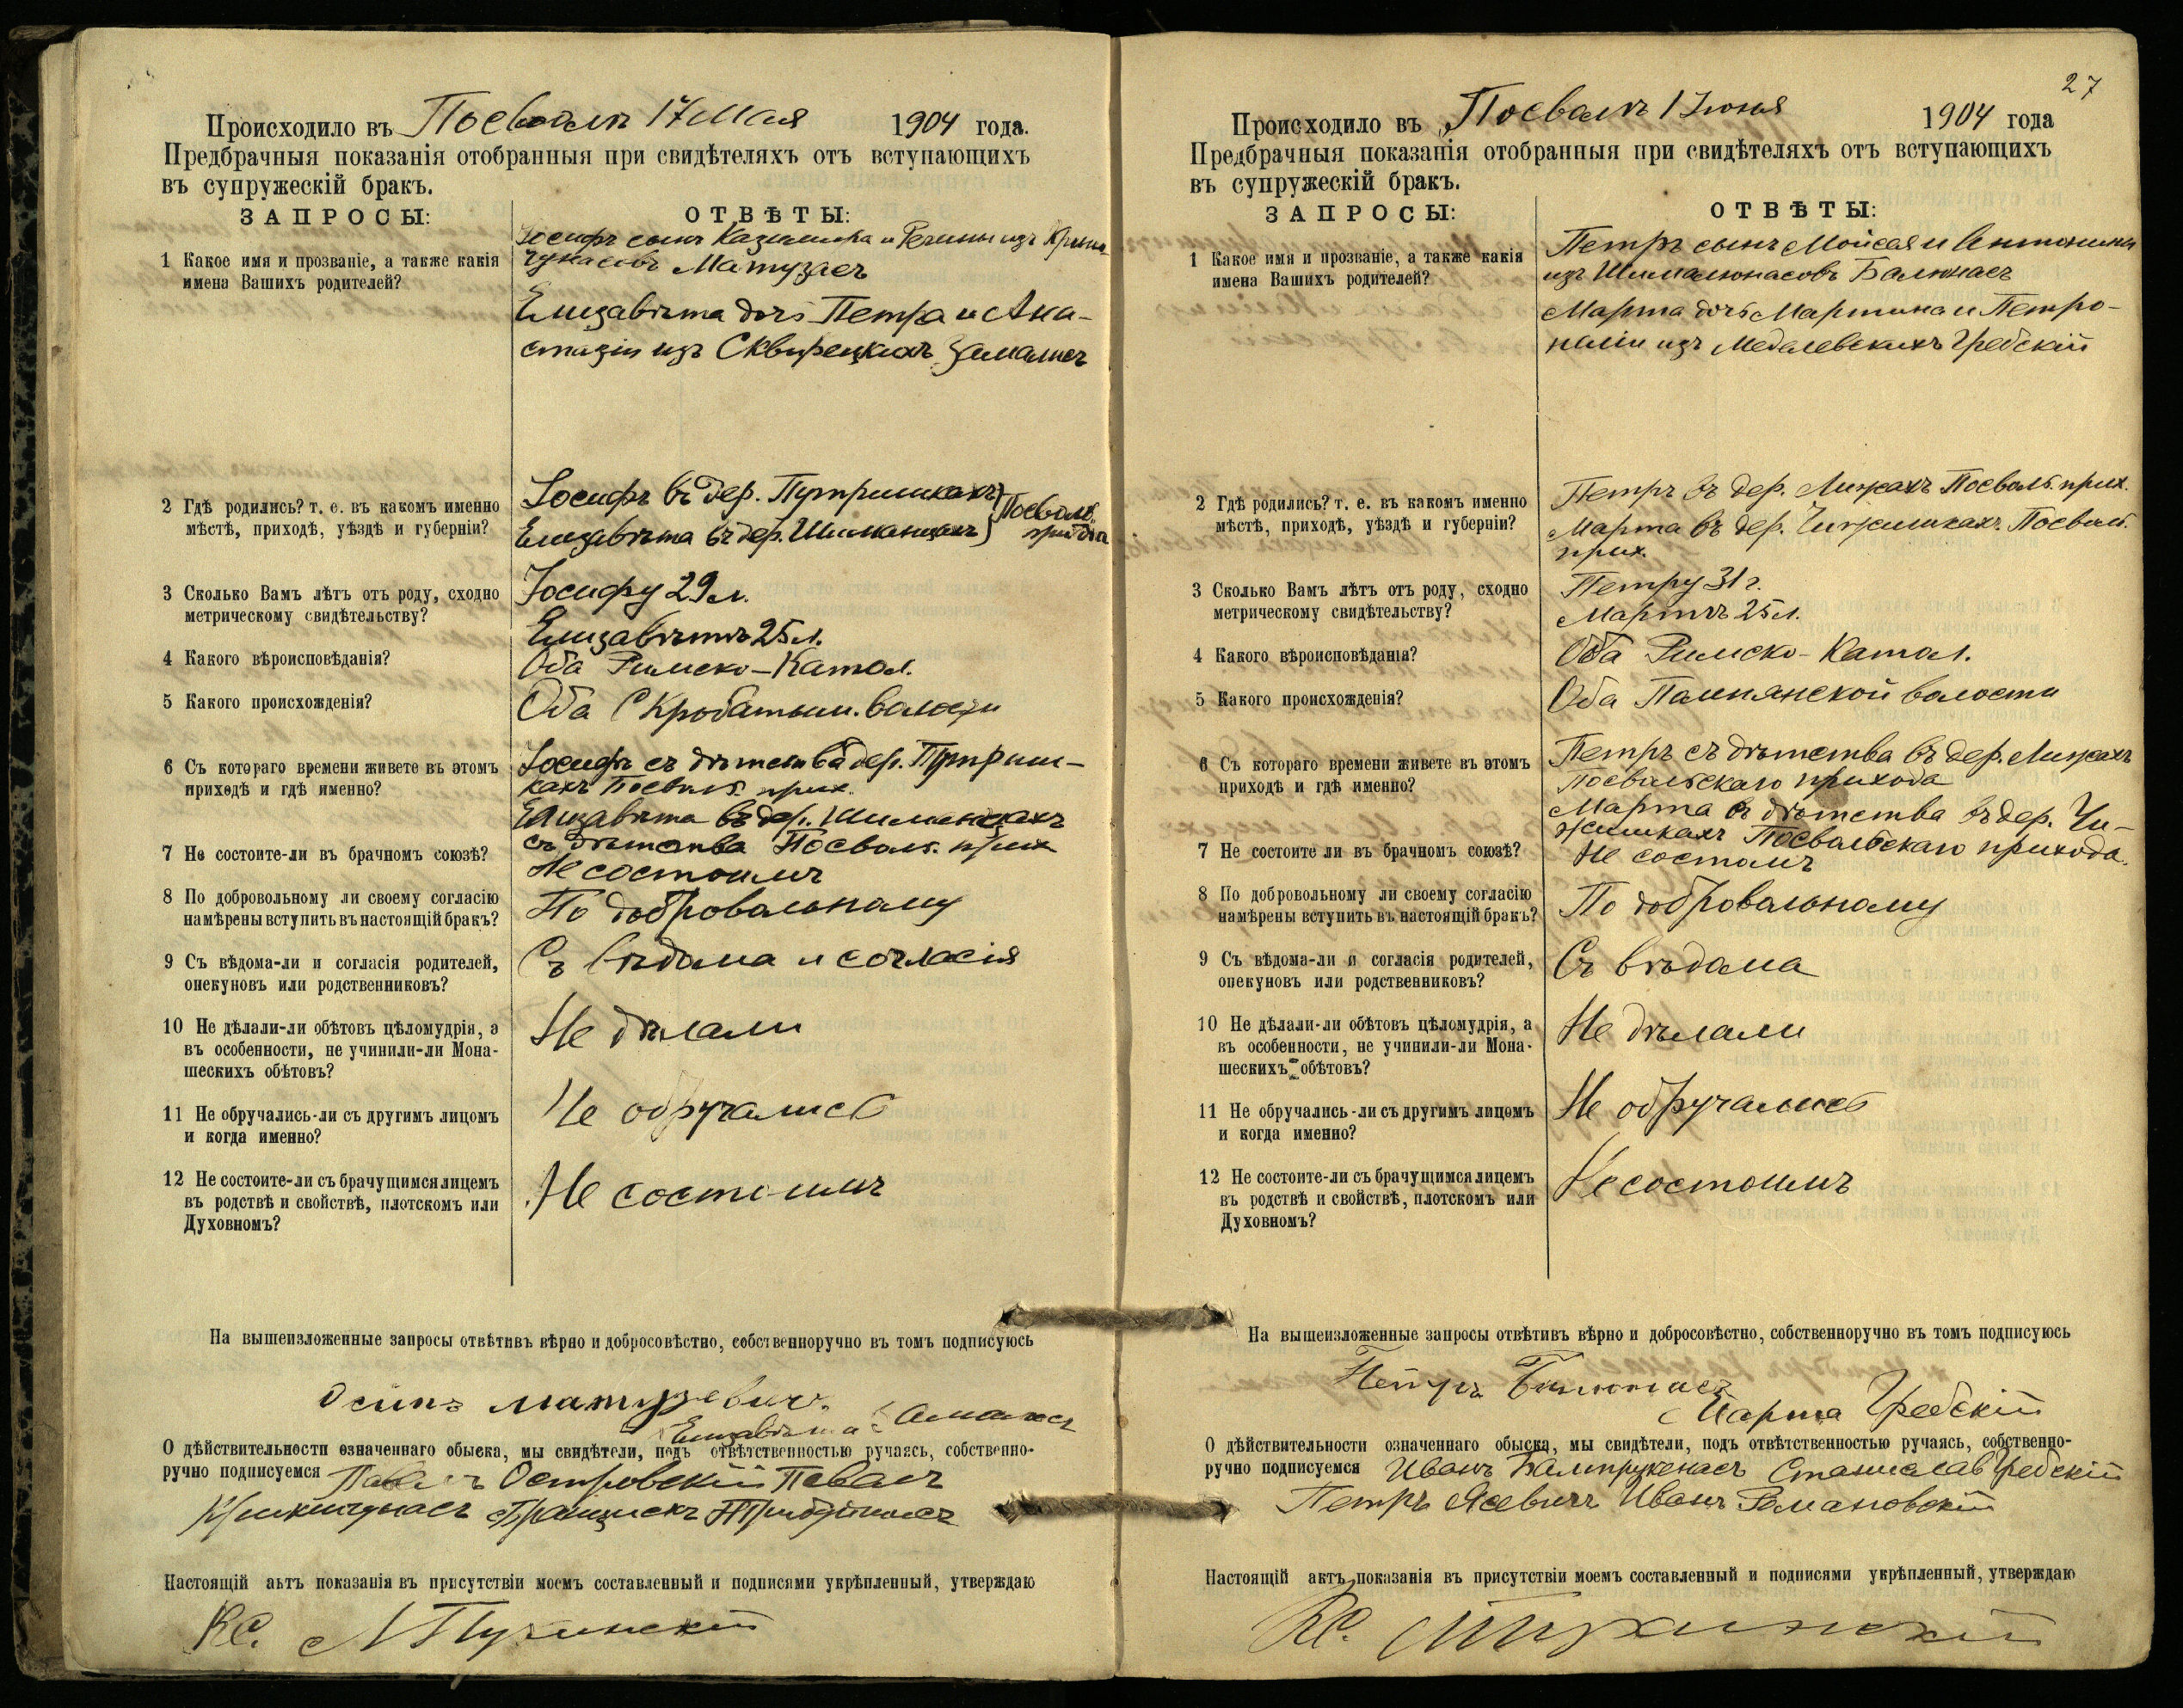 Происходило въ Посволѣ 17 Мая 1904 года.
Предбрачныя показанія отобранныя при свидѣтеляхъ отъ вступающихъ
въ супружескій бракъ.
ЗАПРОСЫ: ОТВѢТЫ:
1 Какое имя и прозваніе, а также какія
имена Вашихъ родителей?
Іосифъ сынъ Казимира и Регины изъ
Матузасъ
Елизавѣта дочь Петра и Ана-
стазіи изъ Сквирецкихъ
2 Гдѣ родились? т. е. въ какомъ именно
мѣстѣ, приходѣ, уѣздѣ и губерніи?
Іосифъ въ дер. Путришкахъ Посволь.
Елизавѣта въ дер. Шиманцахъ прихода
3 Сколько Вамъ лѣтъ отъ роду, сходно
метрическому свидѣтельству?
Іосифу 29 л.
Елизавѣтѣ 25 л.
4 Какого вѣроисповѣданія?
Оба Римско-Катол.
5 Какого происхожденія?
Оба Скробатышк. волости
6 Съ котораго времени живете въ этомъ
приходѣ и гдѣ именно?
Іосифъ съ дѣтства въ дер. Путриш-
кахъ Посволь. прих.
Елизавѣта въ дер. Шиманцахъ
съ дѣтства Посволь. прих
7 Не состоите-ли въ брачномъ союзѣ?
Не состоимъ
8 По добровольному ли своему согласію
намѣрены вступить въ настоящій бракъ?
По добровольному
9 Съ вѣдома-ли и согласія родителей,
опекуновъ или родственниковъ?
Съ вѣдома и согласія
10 Не дѣлали-ли обѣтовъ цѣломудрія, а
въ особенности, не учинили-ли Мона-
шескихъ обѣтовъ?
Не дѣлали
11 Не обручались-ли съ другимъ лицомъ
и когда именно?
Не обручались
12 Не состоите-ли съ брачущимся лицемъ
въ родствѣ и свойствѣ, плотскомъ или
Духовномъ?
Не состоимъ
На вышеизложенные запросы отвѣтивъ вѣрно и добросовѣстно, собственноручно въ томъ подписуюсь
Осипъ Матузевич.
Елизавѣта
О дѣйствительности означеннаго обыска, мы свидѣтели, подъ отвѣтственностью ручаясь, собственно-
ручно подписуемся Павелъ Островскій Павелъ
Францискъ
Настоящій актъ показанія въ присутствіи моемъ составленный и подписями укрѣпленный, утверждаю
Кс.
27
Происходило въ Посволѣ 1 Іюня 1904 года
Предбрачныя показанія отобранныя при свидѣтеляхъ отъ вступающихъ
въ супружескій бракъ.
ЗАПРОСЫ: ОТВѢТЫ:
1 Какое имя и прозваніе, а также какія
имена Вашихъ родителей?
Петръ сынъ Мойсея и Антонины
изъ Шималюнасовъ Балюнасъ
Марта дочь Мартина и Петро-
неліи изъ Медалевскихъ Гребскій
2 Гдѣ родились? т. е. въ какомъ именно
мѣстѣ, приходѣ, уѣздѣ и губерніи?
Петръ въ дер. Лижахъ Посволь. прих.
Марта въ дер. Чижишкахъ Посвол.
прих.
3 Сколько Вамъ лѣтъ отъ роду, сходно
метрическому свидѣтельству?
Петру 31 г.
Мартѣ 25 л.
4 Какого вѣроисповѣданія?
Оба Римско-Катол.
5 Какого происхожденія?
Оба Пампянской волости
6 Съ котораго времени живете въ этомъ
приходѣ и гдѣ именно?
Петръ съ дѣтства въ дер. Лижахъ
Посвольскаго прихода
Марта съ дѣтства въ дер. Чи-
жишкахъ Посвольскаго прихода.
7 Не состоите ли въ брачномъ союзѣ?
Не состоимъ
8 По добровольному ли своему согласію
намѣрены вступить въ настоящій бракъ?
По добровольному
9 Съ вѣдома-ли и согласія родителей,
опекуновъ или родственниковъ?
Съ вѣдома
10 Не дѣлали-ли обѣтовъ цѣломудрія, а
въ особенности, не учинили-ли Мона-
шескихъ обѣтовъ?
Не дѣлали
11 Не обручались-ли съ другимъ лицомъ
и когда именно?
Не обручались
12 Не состоите-ли съ брачущимся лицемъ
въ родствѣ и свойствѣ, плотскомъ или
Духовномъ?
Не состоимъ
На вышеизложенные запросы отвѣтивъ вѣрно и добросовѣстно, собственноручно въ томъ подписуюсь
Петръ Балюнасъ
Марта Гребскій
О дѣйствительности означеннаго обыска, мы свидѣтели, подъ отвѣтственностью ручаясь, собственно-
ручно подписуемся Иванъ Станиславъ Гребскій
Петръ Ясевичъ Иванъ Романовскій
Настоящій актъ показанія въ присутствіи моемъ составленный и подписями укрѣпленный, утверждаю
Кс.